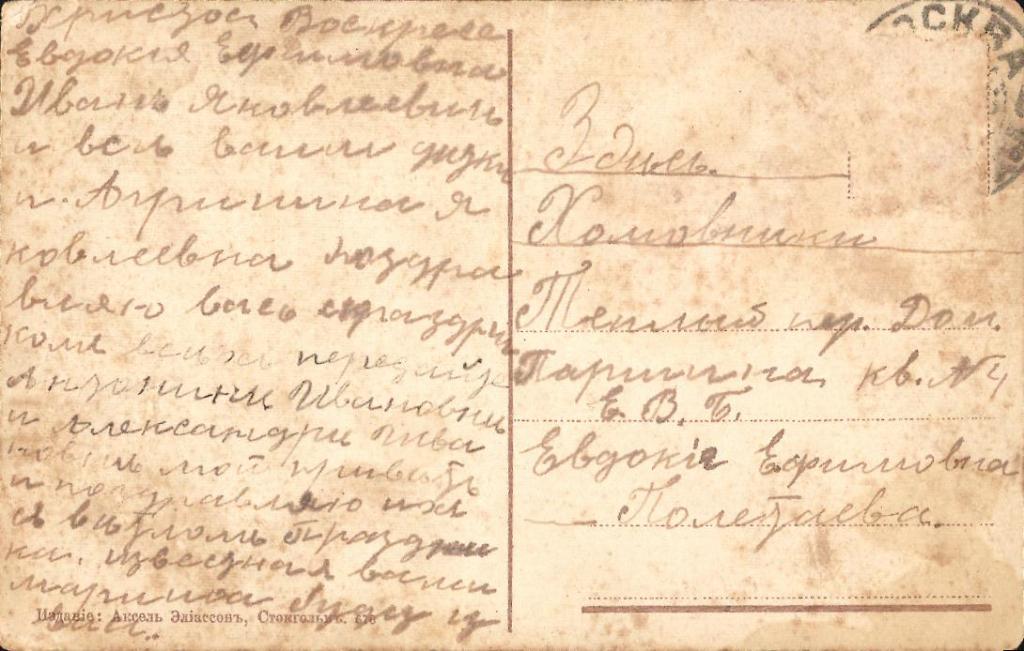 Христос Воскресе
Евдокия Ефимовна
Иванъ Яковлеевич
и всъ ваши
и. Агрипина я
ковлеевна поздра
вляю васъ спраздни
комъ передайте
Антонини Ивановны
и Александри Ива
мой привѣтъ
и поздравляю иха
празник
известная вами
марина
вам.
Изданіе: Аксель Эліассонъ, Стокгольмъ.
МОСКВА
Здись.
Хомовники
Теплый пер. Дом.
Паршина кв. №4
Е. В. Б.
Евдокіе Ефимовна
Полетаева.